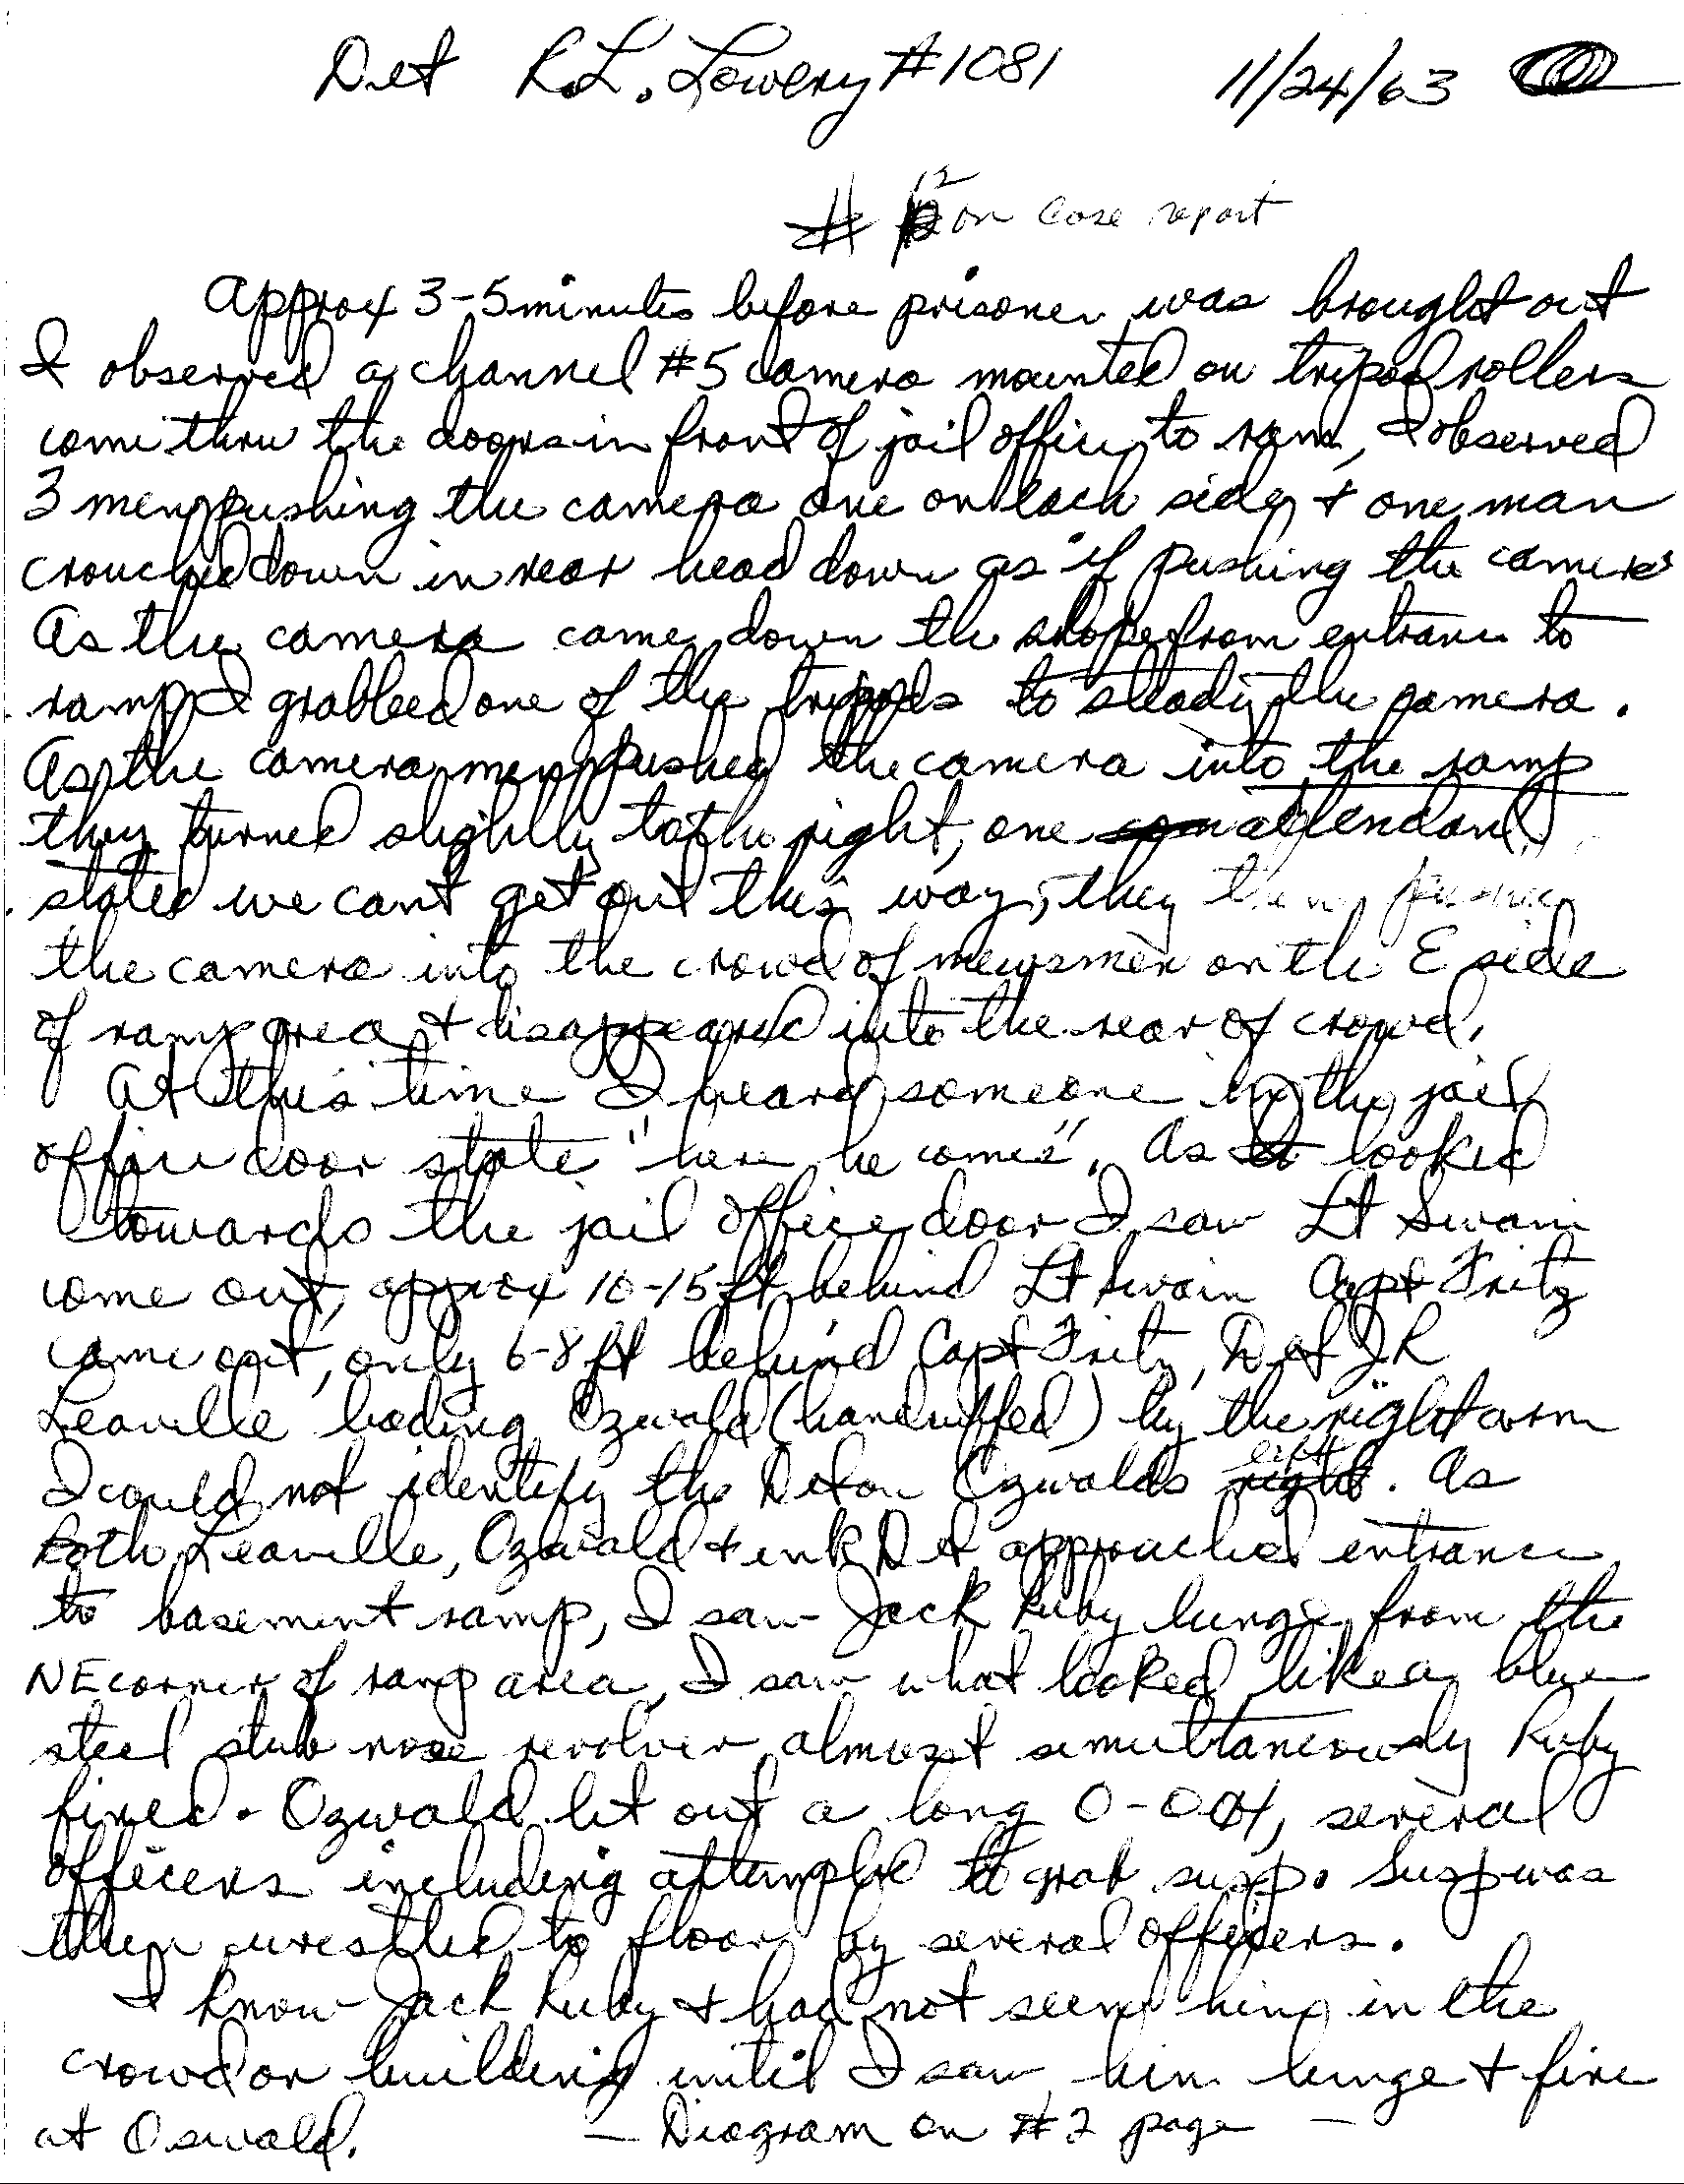 Det R.L. Lowery #1081 11/24/63
# 12 on case report
Approx 3-5 minutes before prisoner was brought out
I observed a channel #5 camera mounted on tripod rollers
come thru the doors in front of jail office to ramp, I observed
3 men pushing the camera one on each side & one man
crouched down in rear head down as if pushing the camera
As the camera came down the slope from entrance to
ramp I grabbed one of the tripods to steady the camera.
As the camera men pushed the camera into the ramp
they turned slightly to the right, one attendant
stated we cant get out this way, they then pushed
the camera into the crowd of newsmen on the E side
of ramp area & disappeared into the rear of crowd.
At this time I heard someone in the jail
office door state "here he comes". As I looked
towards the jail office door I saw Lt Swain
come out, approx 10-15 ft behind Lt Swain Capt Fritz
came out, only 6-8 ft behind Capt Fritz, Det J R
Leaville leading Ozwald (handcuffed) by the right arm
I could not identify the Det on Ozwalds left. As
both Leaville, Ozwald & unk Det approached entrance
to basement ramp, I saw Jack Ruby lunge from the
NE corner of ramp area, I saw what looked like a blue
steel stub nose revolver almost simultaneously Ruby
fired. Ozwald let out a long O-OOH, several
officers including attempted to grab susp. Susp was
then wrestled to floor by several officers.
I know Jack Ruby & had not seen him in the
crowd or building until I saw him lunge & fire
at Oswald. — Diagram on #2 page —